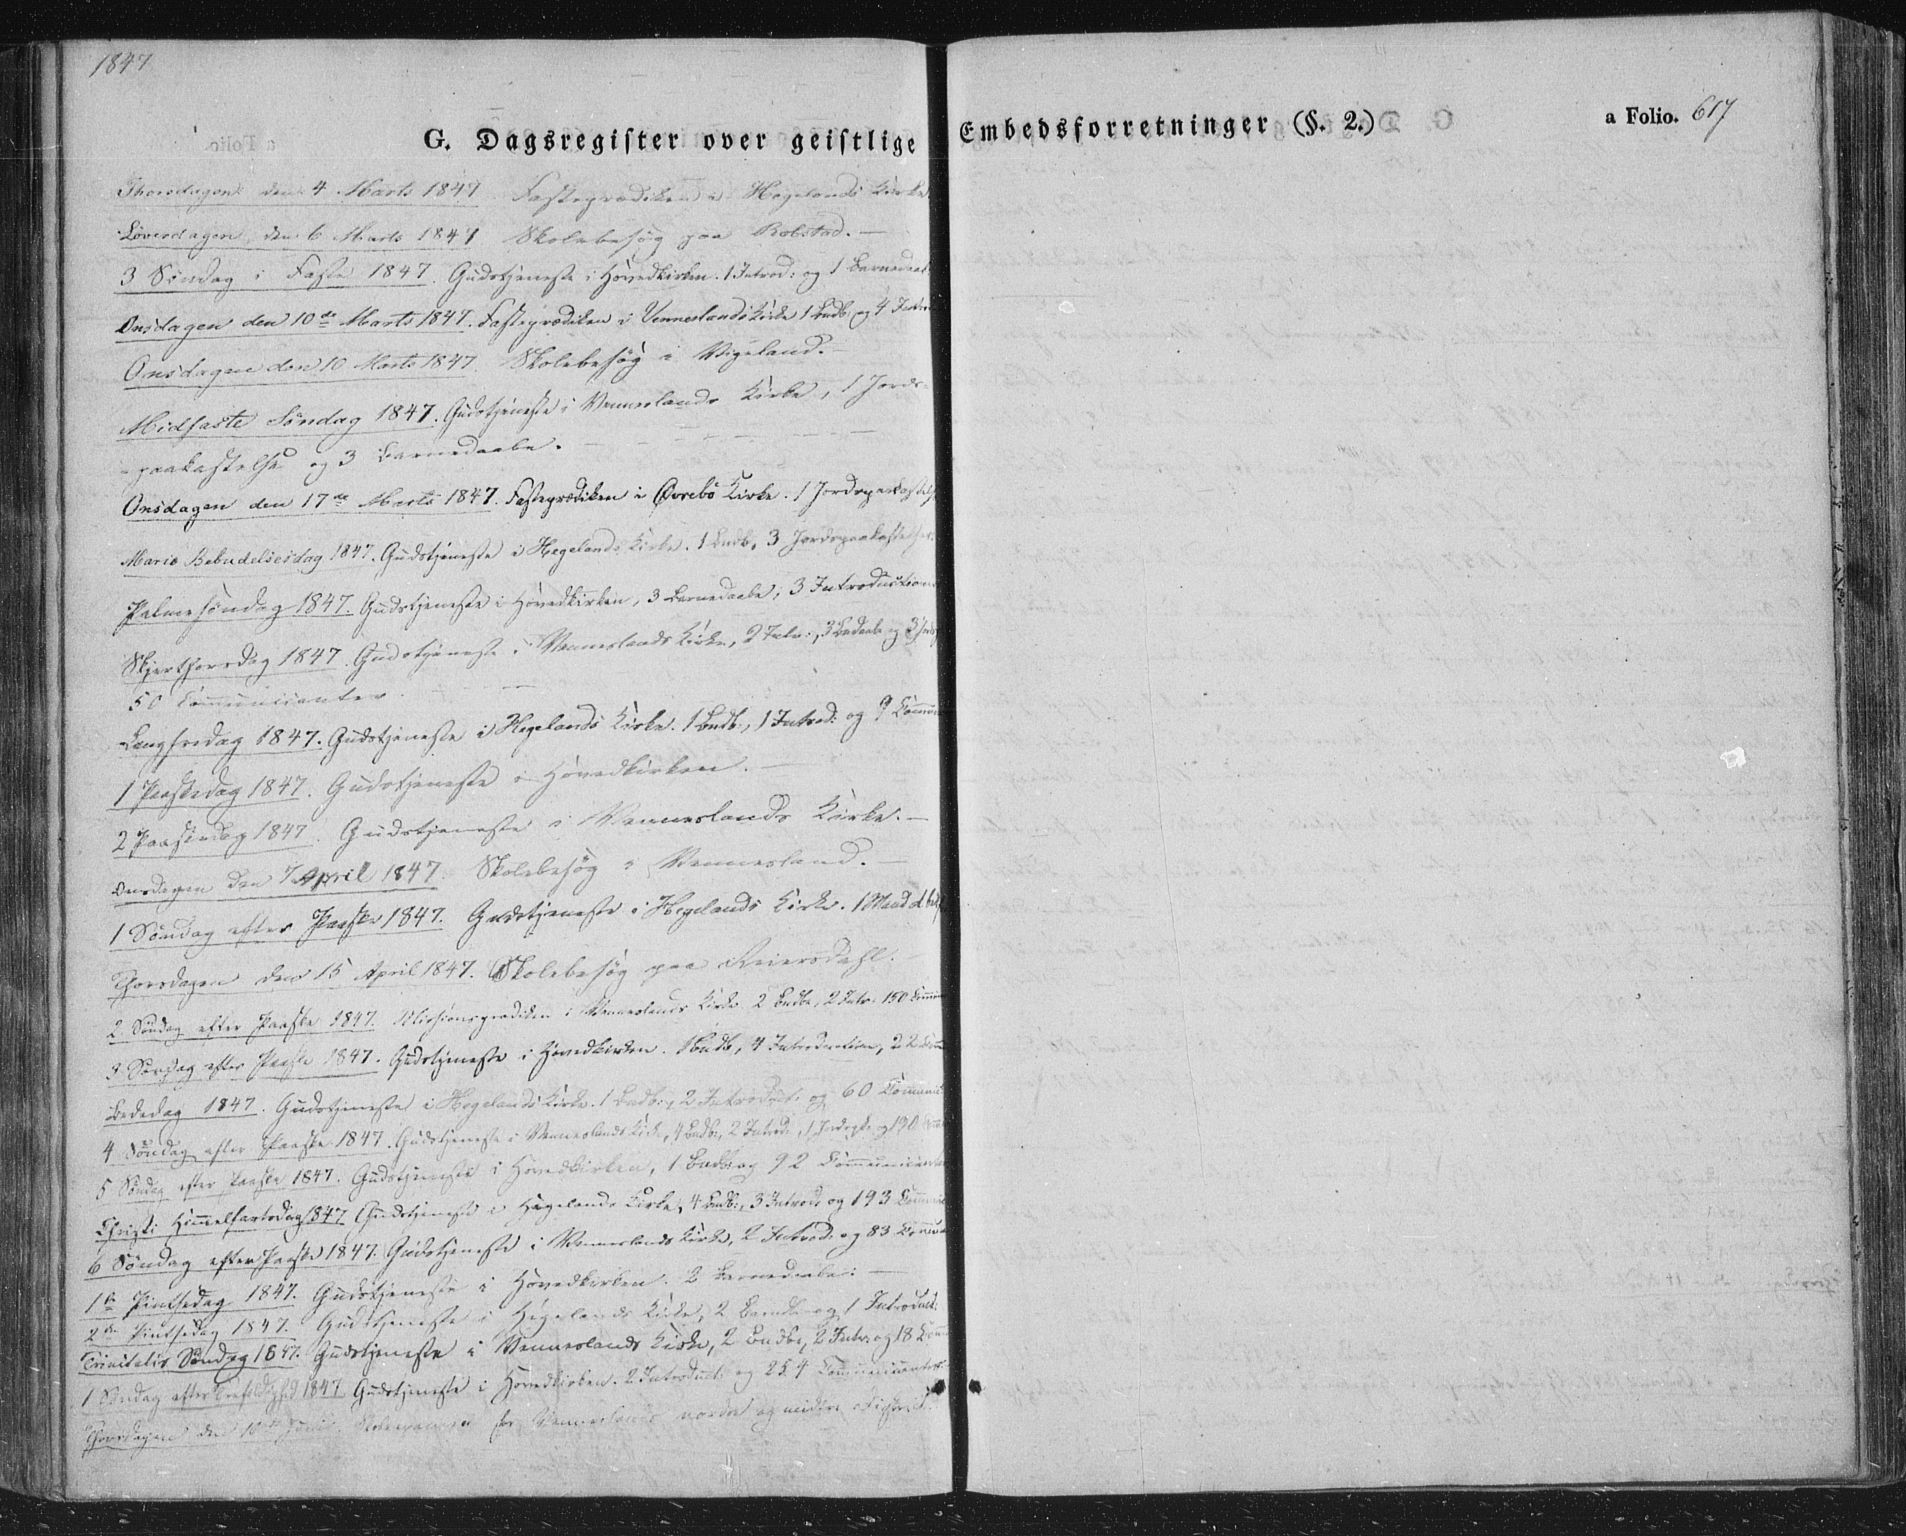 1847
G. Dagsregister over geistlige Embedsforretninger (§. 2.)
a Folio. 617
Thorsdagen den 4 Marts 1847 Fasteprædiken i Hegelands Kirke.
Løverdagen den 6 Marts 1847 Skolebesøg paa Rolstad. —
3 Søndag i Faste 1847. Gudstjeneste i Hovedkirken. 1 Introd: og 1 Barnedaab
Onsdagen den 10de Marts 1847. Fasteprædiken i Venneslands Kirke 1 Bndb. og 4 Introd
Onsdagen den 10 Marts 1847. Skolebesøg i Vigeland. —
Midfaste Søndag 1847. Gudstjeneste i Venneslands Kirke, 1 Jords-
-paakastelse og 3 Barnedaabe. —
Onsdagen den 17de Marts 1847. Fasteprædiken i Øvrebø Kirke. 1 Jordspaakastelse
Mariæ Bebudelsesdag 1847. Gudstjeneste i Hegelands Kirke. 1 Bndb, 3 Jordspaakastelser.
Palmesøndag 1847. Gudstjeneste i Hovedkirken, 3 Barnedaabe, 3 Introductioner
Skjerthorsdag 1847. Gudstjeneste i Venneslands Kirke, 2 Intr:, 3 Bndaabe og 3
50 Communicanter. —
Langfredag 1847. Gudstjeneste i Hegelands Kirke. 1 Bndb:, 1 Introd: og 9 Commun
1 Paaskedag 1847. Gudstjeneste i Hovedkirken. —
2 Paaskedag 1847. Gudstjeneste i Venneslands Kirke. —
Onsdagen den 7 April 1847. Skolebesøg i Vennesland. —
1 Søndag efter Paaske 1847. Gudstjeneste i Hegelands Kirke. 1
Thorsdagen den 15 April 1847. Skolebesøg paa Reiersdahl.
2 Søndag efter Paaske 1847. Missionsprædiken i Venneslands Kirke 2 Bndbe, 2 Intr: 150 Commun
3 Søndag efter Paaske 1847. Gudstjeneste i Hovedkirken. Bndb, 4 Introduction, 22 Comm
Bededag 1847. Gudstjeneste i Hegelands Kirke. 1 Bndb:, 2 Introduct: og 60 Communi
4 Søndag efter Paaske 1847. Gudstjeneste i Venneslands Kirke, 4 Bndb:, 2 Introd:, 1 Jordspk og 190
5 Søndag efter Paaske 1847. Gudstjeneste i Hovedkirken, 1 Bndb: og 92 Communicanter
Christi Himmelfartsdag 1847 Gudstjeneste i Hegelands Kirke, 4 Bndb:, 3 Introd: og 193 Commun
6 Søndag efter Paaske 1847. Gudstjeneste i Venneslands Kirke, 2 Introd: og 83 Commun
1te Pintsedag 1847. Gudstjeneste i Hovedkirken. 2 Barnedaabe: —
2den Pintsedag 1847. Gudstjeneste i Hegelands Kirke, 2 Barndb: og 1 Introduct:
Trinitatis Søndag 1847. Gudstjeneste i Venneslands Kirke, 2 Bndbe, 2 Intr: og 18 Comm
1 Søndag efter Trefoldighed 1847. Gudstjeneste i Hovedkirken. 2 Introduct: og 254 Communicanter
Thorsdagen den 10de Juni. Skoleexamen for Venneslands nordre og